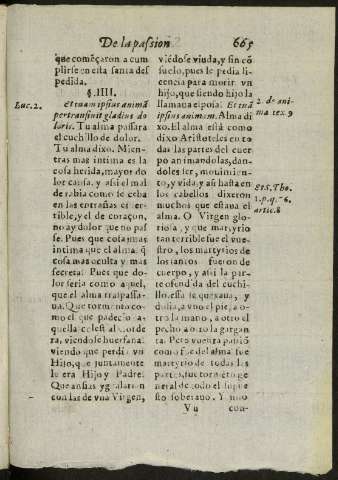 De la passion 665
que començaron a cum
plirse en esta santa des
pedida.
§. IIII.
Luc. 2.
Et tuam ipsius animã
pertransiuit gladius do
loris. Tu alma passara
el cuchillo de dolor.
Tu alma dixo. Mien-
tras mas intima es la
cosa herida, mayor do
lor causa, y assi el mal
de rabia como se ceba
en las entrañas es ter-
rible, y el de coraçon,
no ay dolor que no pas
se. Pues que cosa mas
intima que el alma: q̃
cosa mas oculta y mas
secreta? Pues que do-
lor seria como aquel,
que el alma traspassa-
ua. Que tormento co-
mo el que padecio a-
quella
ra, viendose huerfana:
viendo que perdia vn
Hijo, que juntamente
le era Hijo y Padre.
Que ansias
con las de vna Virgen,
viẽdose viuda, y sin cõ
suelo, pues le pedia li-
cencia para morir vn
hijo, que siendo hijo la
llamaua esposa. Et tuã
ipsius animam. Alma di
xo. El alma está como
dixo Aristoteles en to
das las partes del cuer
po animandolas, dan-
doles ser, mouimien-
to, y vida, y assi hasta en
los cabellos dixeron
muchos que estaua el
alma. O Virgen glo-
riosa, y que martyrio
tan terrible fue el vue-
stro, los martyrios de
los santos fueron de
cuerpo, y assi la par-
te ofendida del cuchi-
llo, essa se quexaua, y
dolia, a vno el pie, a o-
tro la mano, a otro el
pecho a otro la gargan
ta. Pero vuestra passiõ
como fue del alma fue
martyrio de todas las
partes, fue tormẽto ge
neral de todo el supue
sto soberano. Y
2. de ani-
ma tex 9
Et S. Tho.
1. p. q. 76.
artic. 8
Vu con-